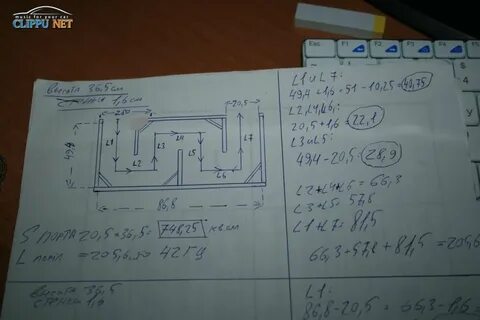 music for your car
CLIPPU NET
Esc
F1
F2
F3
F4
высота 36,5 см
стенка 1,6 см
20,5
49,4
L1
L2
L3
L4
L5
L6
L7
86,8
S порта 20,5 × 36,5 = 748,25 кв см
L = 205,6 = 42 Гц
высота 36,5
стенка 1,6
L1 и L7:
49,4 + 1,6 = 51 - 10,25 =
L2, L4, L6:
20,5 + 1,6 = 22,1
L3 и L5:
49,4 - 20,5 = 28,9
L2 + L4 + L6 = 66,3
L3 + L5 = 57,8
L1 + L7 = 81,5
66,3 + 57,8 + 81,5 = 205,6
L1:
86,8 - 20,5 = 66,3 - 1,6 =